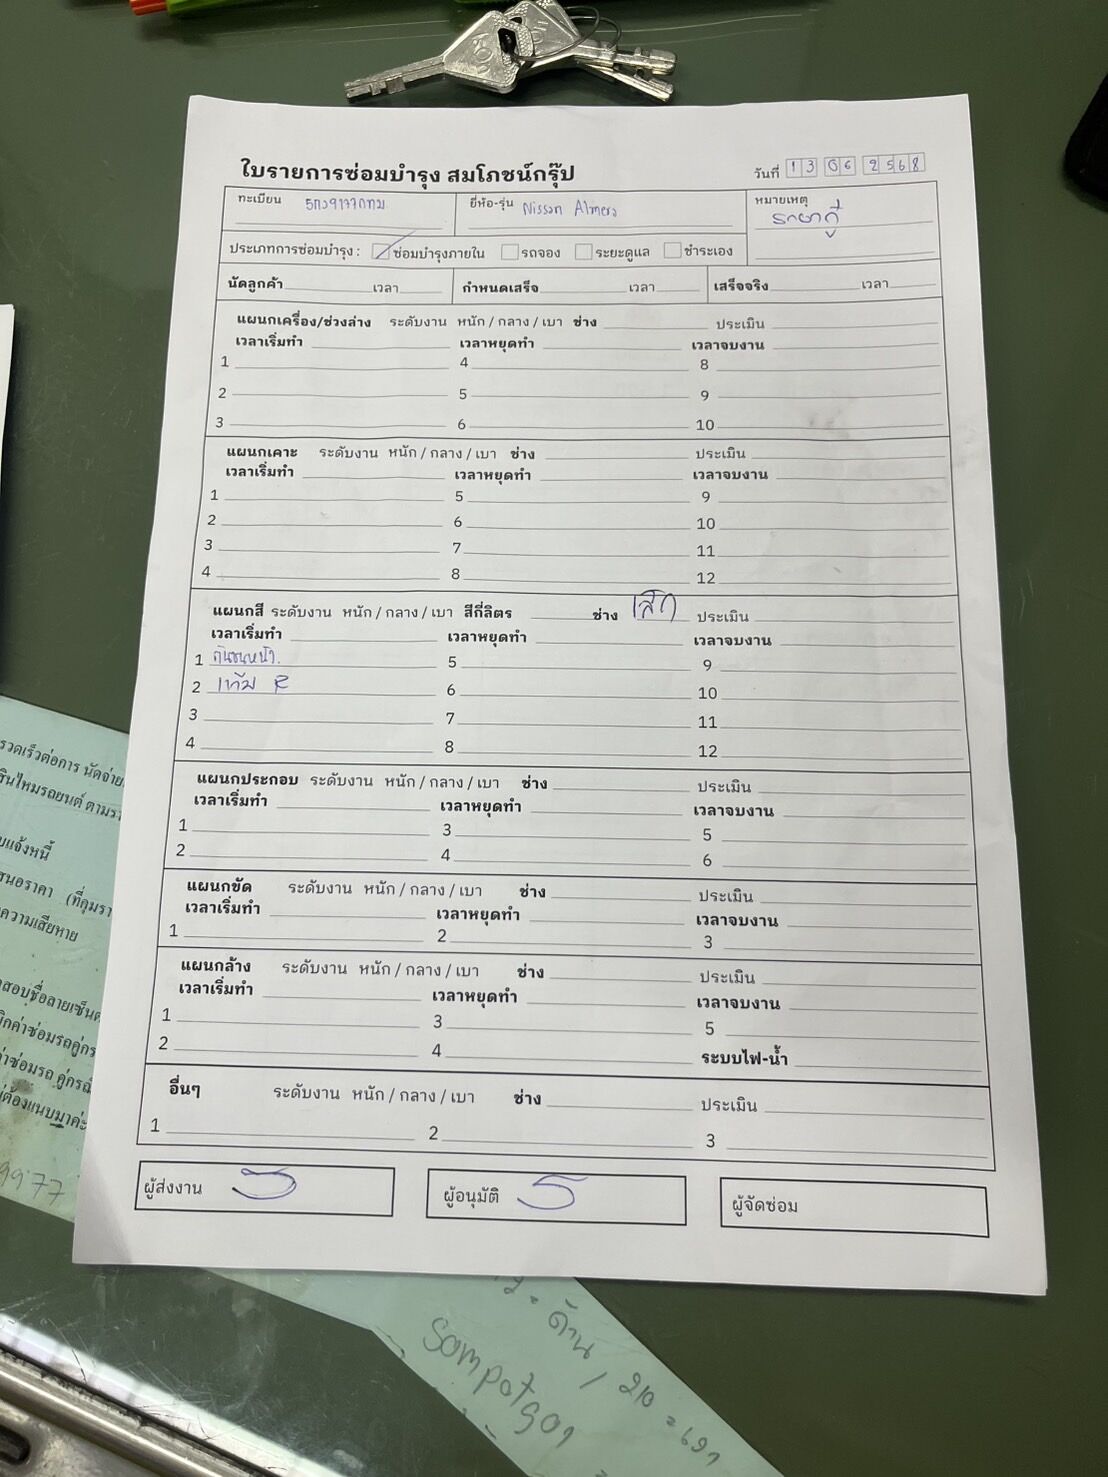 ใบรายการซ่อมบำรุง สมโภชน์กรุ๊ป
วันที่ 13 06 2568
ทะเบียน 5กว9177กทม
ยี่ห้อ-รุ่น Nissan Almera
หมายเหตุ
ประเภทการซ่อมบำรุง : ซ่อมบำรุงภายใน รถจอง ระยะดูแล ชำระเอง
นัดลูกค้า เวลา กำหนดเสร็จ เวลา เสร็จจริง เวลา
แผนกเครื่อง/ช่วงล่าง ระดับงาน หนัก / กลาง / เบา ช่าง ประเมิน
เวลาเริ่มทำ เวลาหยุดทำ เวลาจบงาน
1 4 8
2 5 9
3 6 10
แผนกเคาะ ระดับงาน หนัก / กลาง / เบา ช่าง ประเมิน
เวลาเริ่มทำ เวลาหยุดทำ เวลาจบงาน
1 5 9
2 6 10
3 7 11
4 8 12
แผนกสี ระดับงาน หนัก / กลาง / เบา สีกี่ลิตร ช่าง เล็ก ประเมิน
เวลาเริ่มทำ เวลาหยุดทำ เวลาจบงาน
1 กันชนหน้า. 5 9
2 R 6 10
3 7 11
4 8 12
แผนกประกอบ ระดับงาน หนัก / กลาง / เบา ช่าง ประเมิน
เวลาเริ่มทำ เวลาหยุดทำ เวลาจบงาน
1 3 5
2 4 6
แผนกขัด ระดับงาน หนัก / กลาง / เบา ช่าง ประเมิน
เวลาเริ่มทำ เวลาหยุดทำ เวลาจบงาน
1 2 3
แผนกล้าง ระดับงาน หนัก / กลาง / เบา ช่าง ประเมิน
เวลาเริ่มทำ เวลาหยุดทำ เวลาจบงาน
1 3 5
2 4 ระบบไฟ-น้ำ
อื่นๆ ระดับงาน หนัก / กลาง / เบา ช่าง ประเมิน
1 2 3
ผู้ส่งงาน
ผู้อนุมัติ
ผู้จัดซ่อม
รวดเร็วต่อการ นัดจ่าย
สินไหมรถยนต์ ตามรา
บแจ้งหนี้
สนอราคา (ที่คุมรา
ความเสียหาย
สอบชื่อลายเซ็นต
บิกค่าซ่อมรถคู่กร
ค่าซ่อมรถ คู่กรณี
ต้องแนบมาค่ะ
9977
ด้าน / 210 =